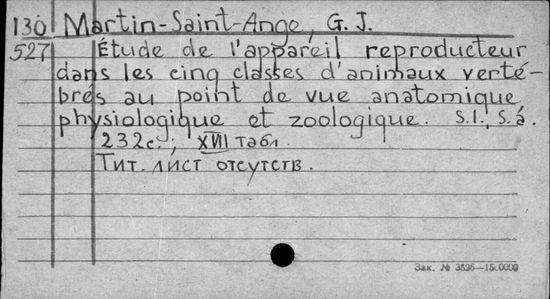 130 Martin-Saint-Ange, G. J.
527 Étude de l'appareil reproducteur
dans les cinq classes d'animaux verté-
brés au point de vue anatomique,
physiologique et zoologique. S.l., S.a.
232c.; XVII табл.
Тит. лист отсутств.
Зак. № 3526—150000